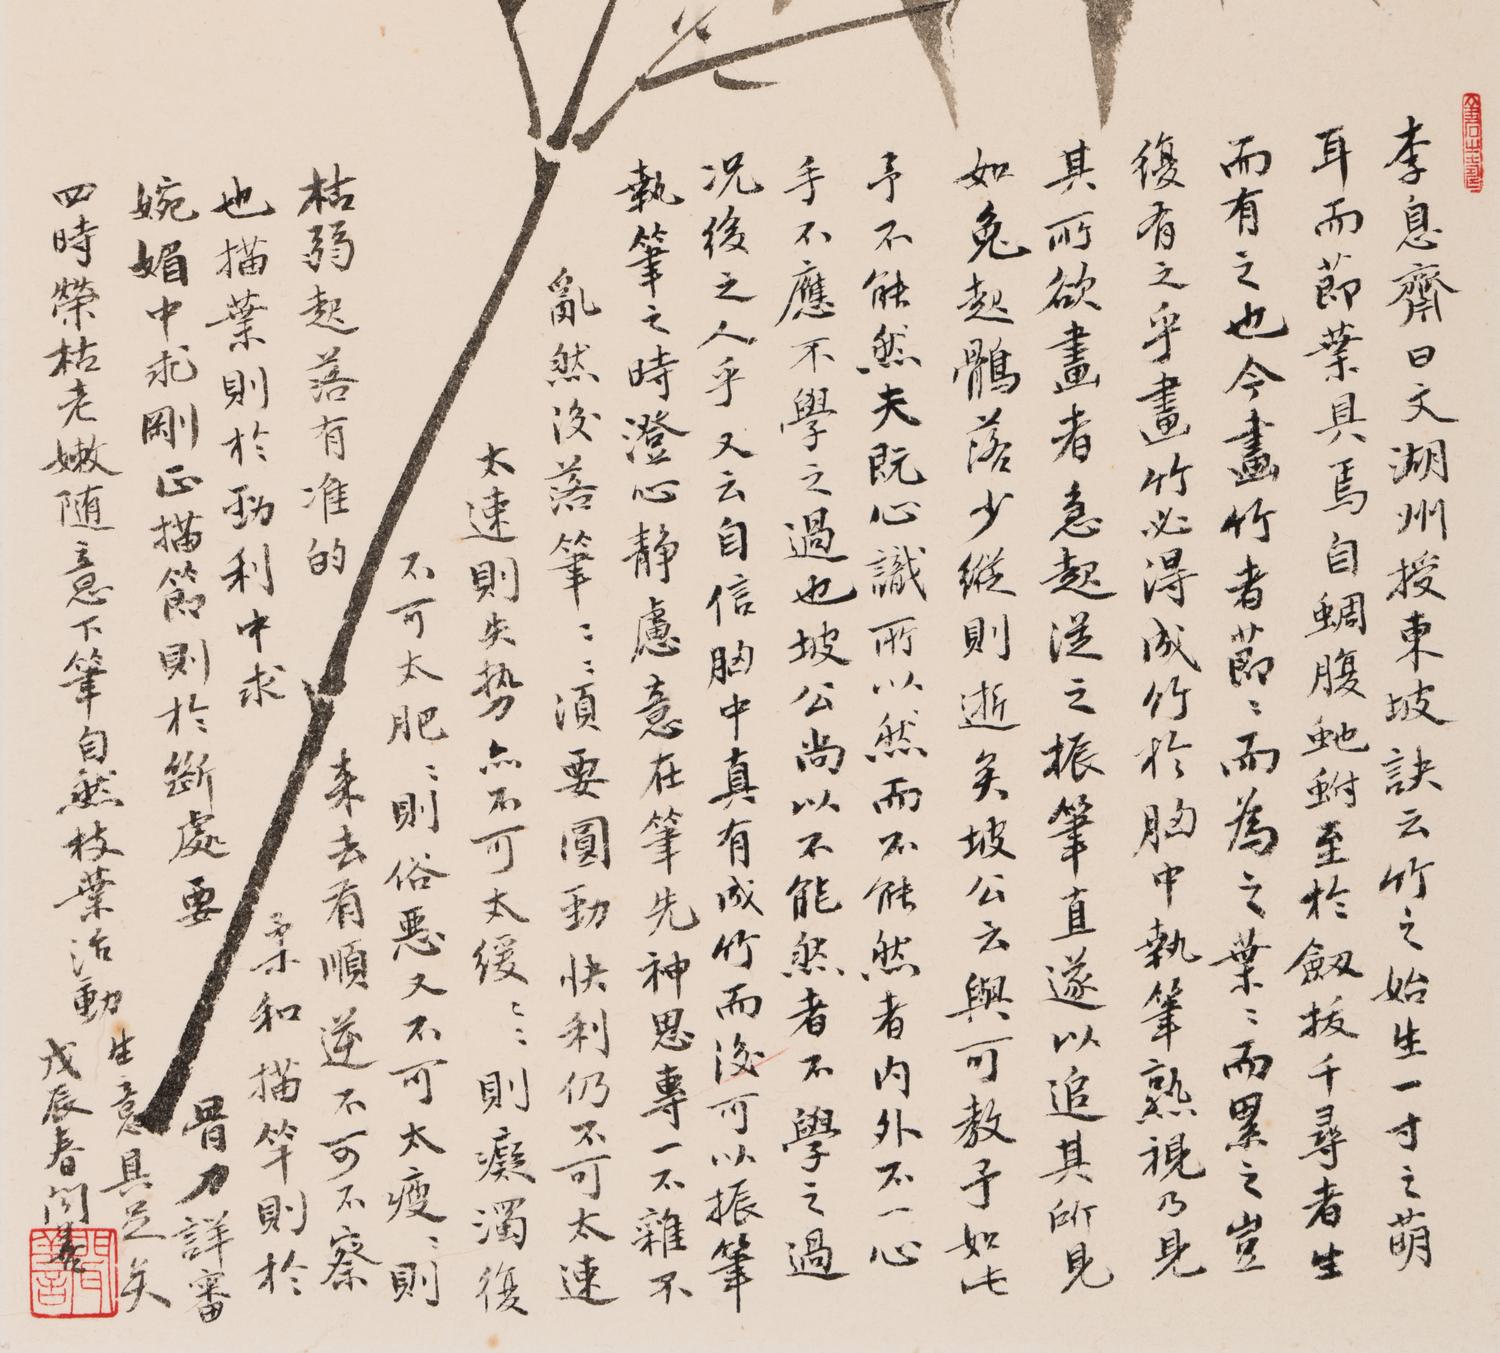 李息齋曰文湖州授東坡訣云竹之始生一寸之萌
耳而節葉具焉自蜩腹虵蚹至於劔拔千尋者生
而有之也今畫竹者節〻而為之葉〻而累之豈
復有之乎畫竹必得成竹於胸中執筆熟視乃見
其所欲畫者急起從之振筆直遂以追其所見
如兔起鶻落少縱則逝矣坡公云與可教予如此
予不能然夫既心識所以然而不能然者內外不一心
手不應不學之過也坡公尚以不能然者不學之過
况後之人乎又云自信胸中真有成竹而後可以振筆
執筆之時澄心靜慮意在筆先神思專一不雜不
亂然後落筆〻〻須要圓勁快利仍不可太速
太速則失勢亦不可太緩〻〻則癡濁復
不可太肥〻則俗惡又不可太瘦〻則
枯弱起落有准的來去有順逆不可不察
也描葉則於勁利中求柔和描竿則於
婉媚中求剛正描節則於斷處要骨力詳審
四時榮枯老嫩随意下筆自然枝葉活動生意具足矣
戊辰春閆善